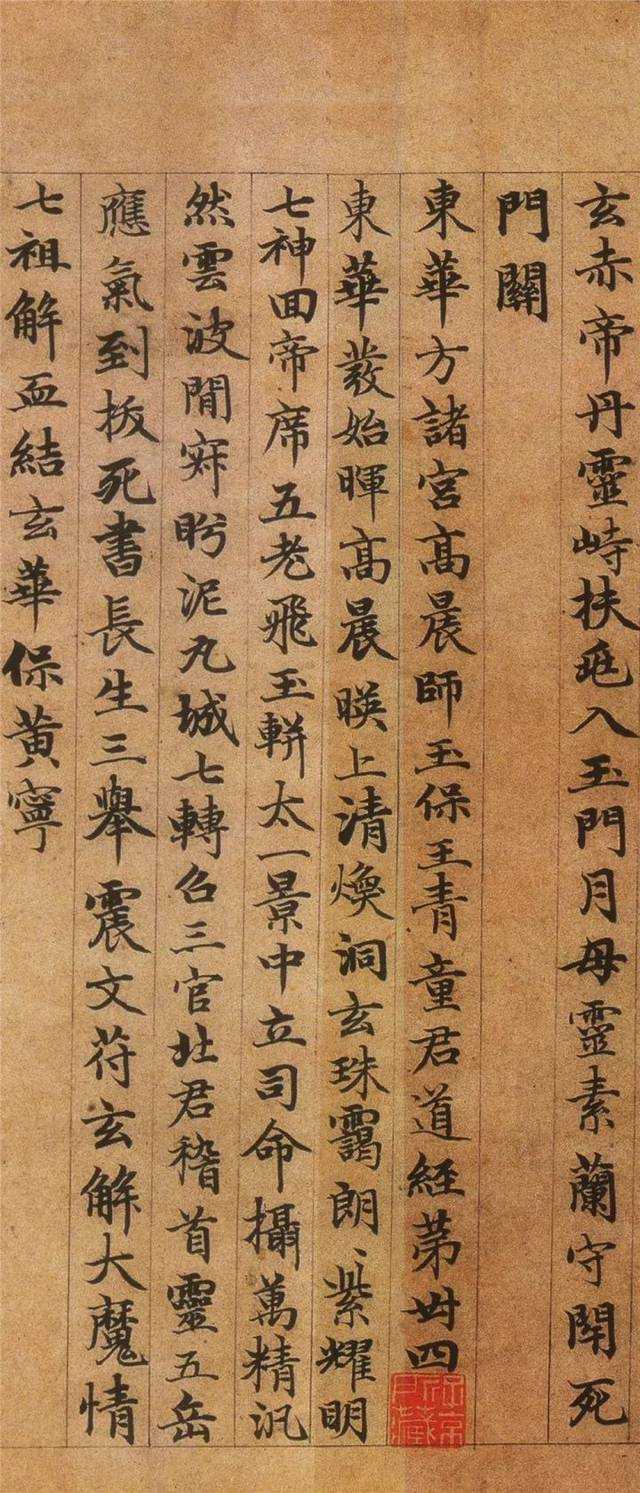 玄赤帝丹靈峙扶兆入玉門月母靈素蘭守閇死
門關
東華方諸宮高晨師玉保王青童君道經苐卌四
東華發始暉高晨暎上清煥洞玄珠靄朗〻紫耀明
七神回帝席五老飛玉輧太一景中立司命攝萬精汎
然雲波閒寂眄泥丸城七轉召三官北君稽首靈五岳
應氣到拔死書長生三舉震文苻玄解大魔情
七祖解血結玄華保黃寧